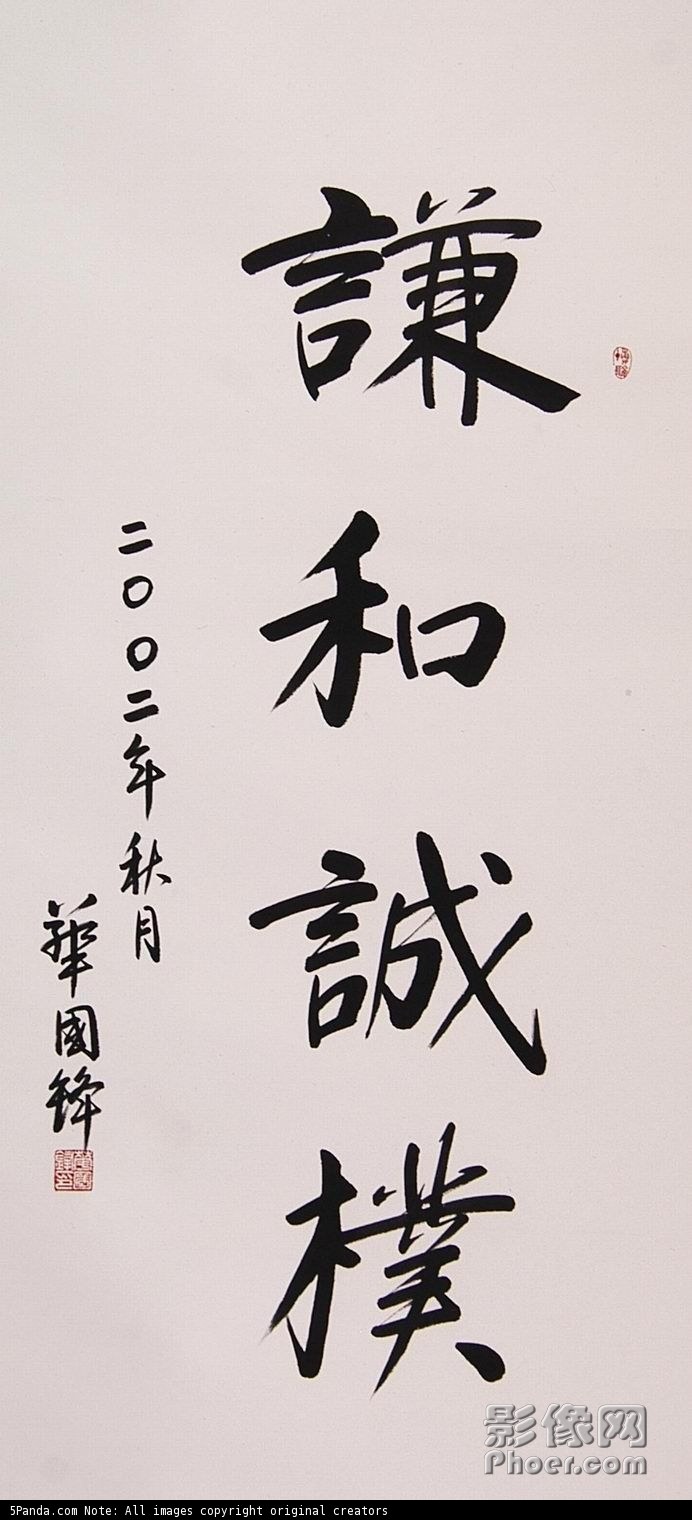 謙和誠樸
二〇〇二年秋月
華國鋒
影像网
Phoer.com
5Panda.com Note: All images copyright original creators